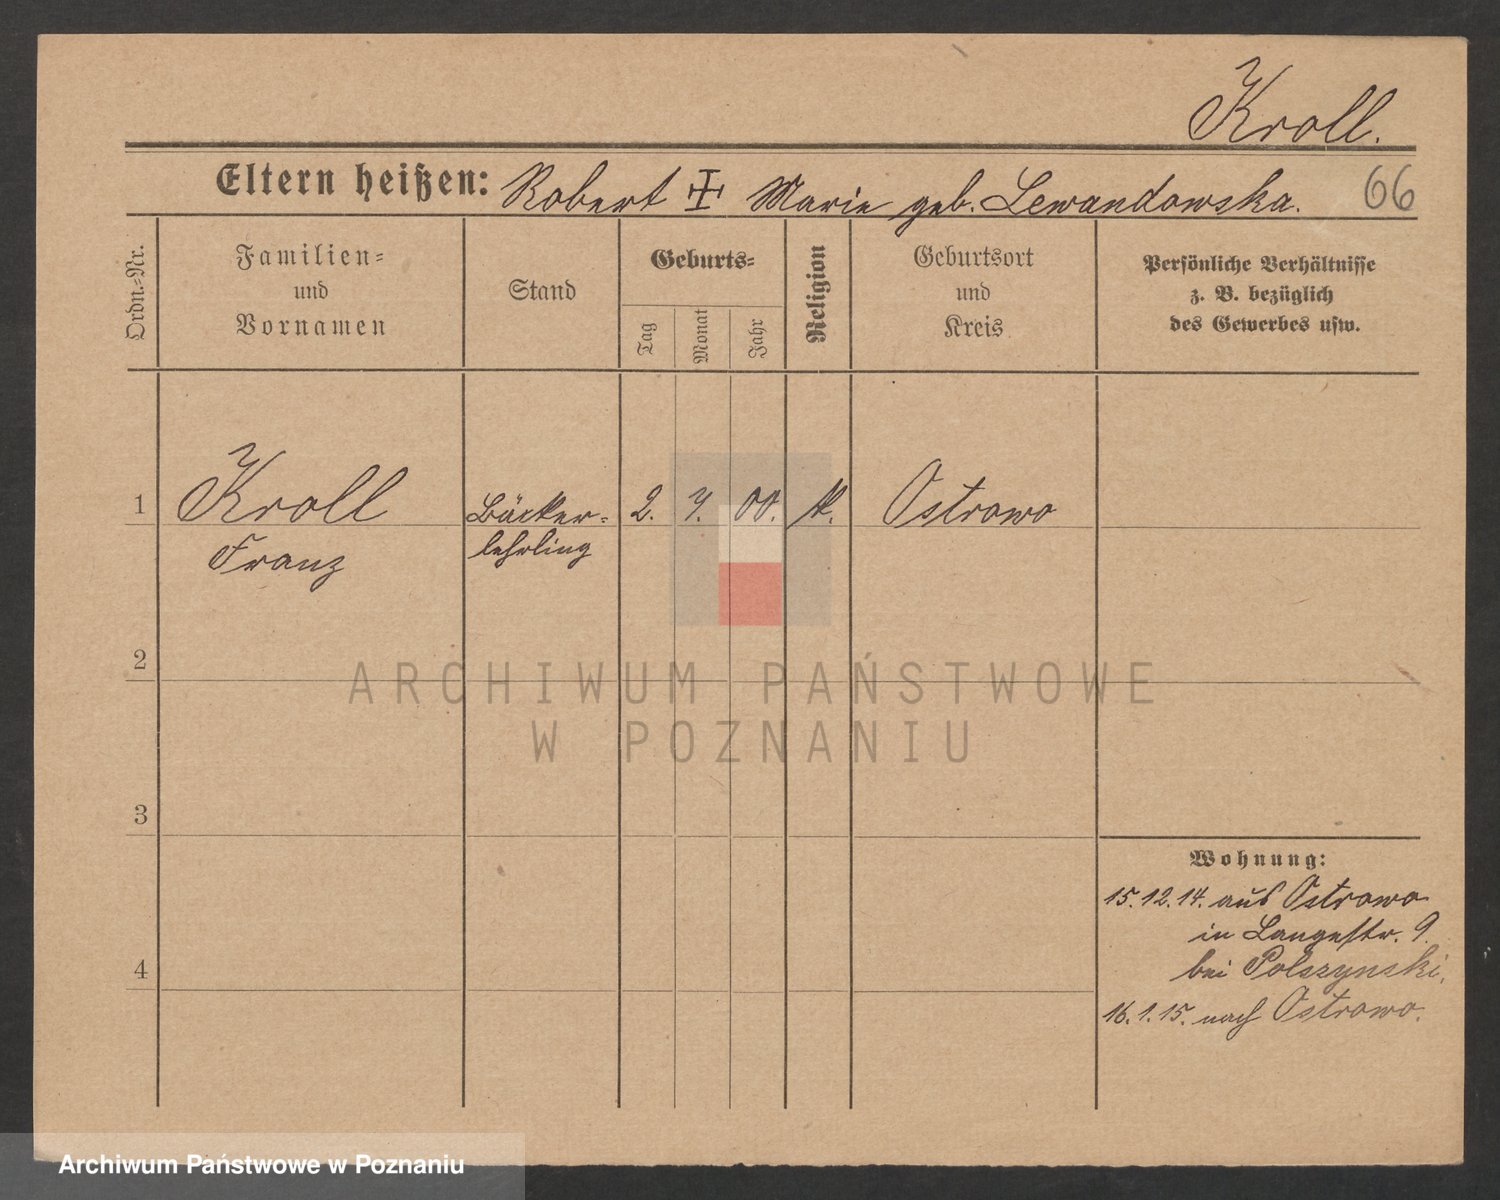 Kroll.
Eltern heißen: Robert ‡ Marie geb. Lewandowska. 66
Ordn.-Nr.
Familien-
und
Vornamen
Stand
Geburts-
Tag
Monat
Jahr
Religion
Geburtsort
und
Kreis
Persönliche Verhältnisse
z. B. bezüglich
des Gewerbes usw.
1 Kroll Bäcker- 2. 7. 00. k. Ostrowo
Franz lehrling
2
ARCHIWUM PAŃSTWOWE
W POZNANIU
3
Wohnung:
15.12.14. aus Ostrowo
in Langestr. 9.
bei Polszynski,
4
16.1.15. nach Ostrowo.
Archiwum Państwowe w Poznaniu